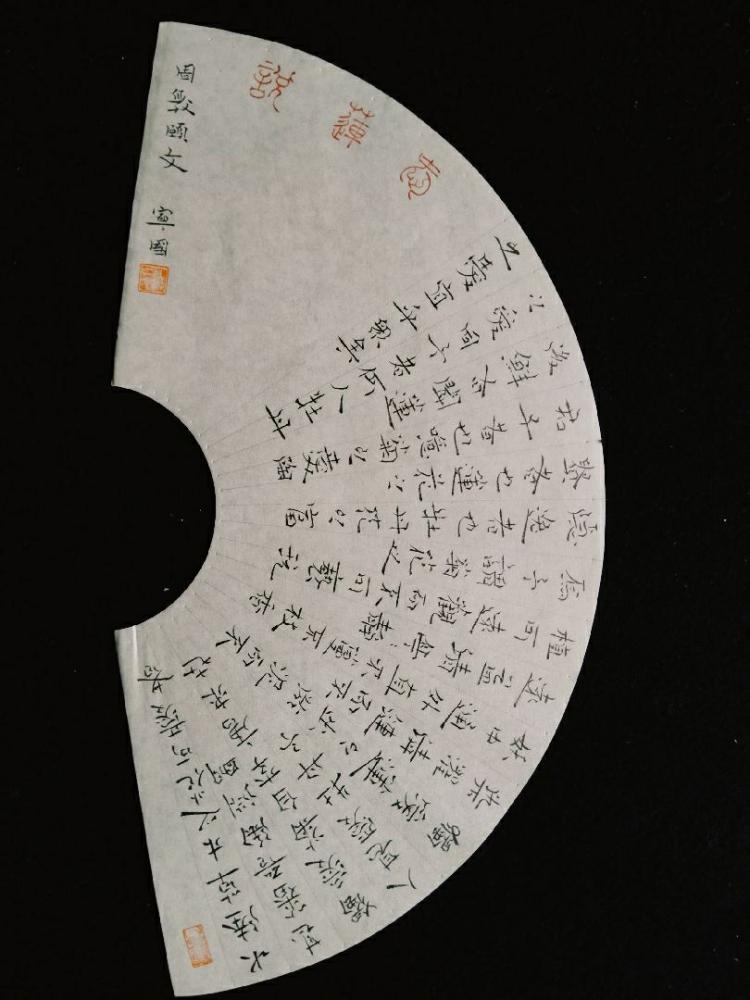 愛蓮說
水陸草木之花可愛者
甚蕃晉陶淵明
獨愛菊自李唐來世
人甚愛牡丹予
獨愛蓮之出淤泥而不
染濯清漣而不
妖中通外直不蔓不枝香
遠益清亭亭淨
植可遠觀而不可褻玩
焉予謂菊花之
隱逸者也牡丹花之富
貴者也蓮花之
君子者也噫菊之愛陶
後鮮有聞蓮
之愛同予者何人牡丹
之愛宜乎眾矣
周敦頤文 寧國